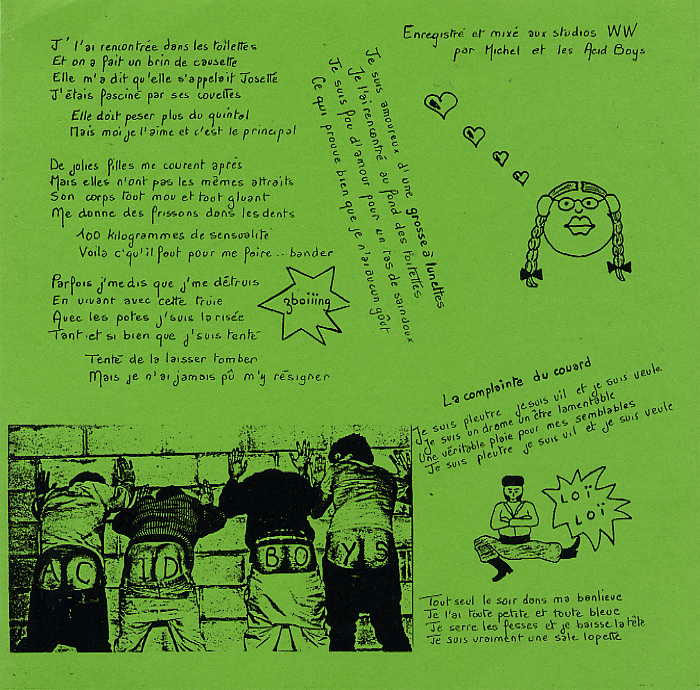 J'l'ai rencontrée dans les toilettes
Et on a fait un brin de causette
Elle m'a dit qu'elle s'appelait Josette
J'étais fasciné par ses couettes
Elle doit peser plus du quintal
Mais moi je l'aime et c'est le principal
De jolies filles me courent après
Mais elles n'ont pas les mêmes attraits
Son corps tout mou et tout gluant
Me donne des frissons dans les dents
100 kilogrammes de sensualité
Voila c'qu'il faut pour me faire... bander
Parfois j'me dis que j'me détruis
En vivant avec cette truie
Avec les potes j'suis la risée
Tant et si bien que j'suis tenté
Tenté de la laisser tomber
Mais je n'ai jamais pû m'y résigner
gboiiing
Je suis amoureux d'une grosse à lunettes
Je l'ai rencontré au fond des toilettes
Je suis fou d'amour pour un tas de saindoux
Ce qui prouve bien que je n'ai aucun goût
Enregistré et mixé aux studios WW
par Michel et les Acid Boys
La complainte du couard
Je suis pleutre je suis vil et je suis veule
Je suis un drame un être lamentable
Une véritable plaie pour mes semblables
Je suis pleutre je suis vil et je suis veule
LOÏ
LOÏ
Tout seul le soir dans ma banlieue
Je l'ai toute petite et toute bleue
Je serre les fesses et je baisse la tête
Je suis vraiment une sale lopette
AC ID BO YS